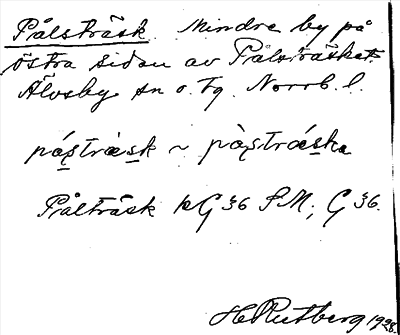 Pålsträsk. Mindre by på
östra sidan av Pålsträsket.
Älvsby sn o. tg. Norrb. l.
påsträsk ~ pàstráska
Pålträsk KG 36 SM; G 36.
H Rutberg 1928.